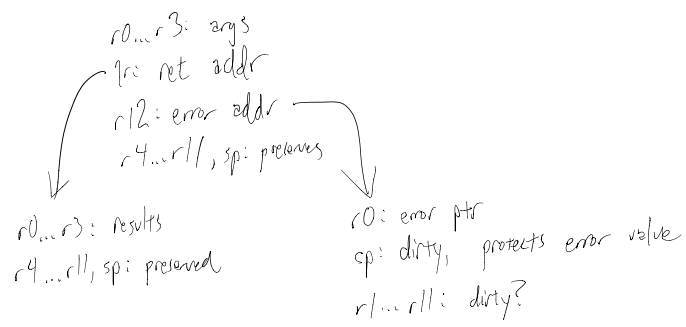 r0...r3: args
lr: ret addr
r12: error addr
r4...r11, sp: preserves
r0...r3: results
r4...r11, sp: preserved
r0: error ptr
sp: dirty, protects error value
r1...r11: dirty?